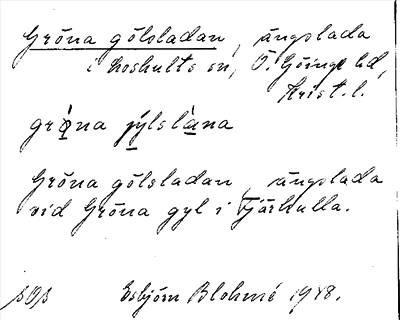 Gröna gölsladan, ängslada
i Loshults sn, Ö. Göinge hd,
Krist. l.
grǿna jýlslàna
Gröna gölsladan, ängslada
vid Gröna gyl i Tjärhulla.
Esbjörn Blohmé 1948.